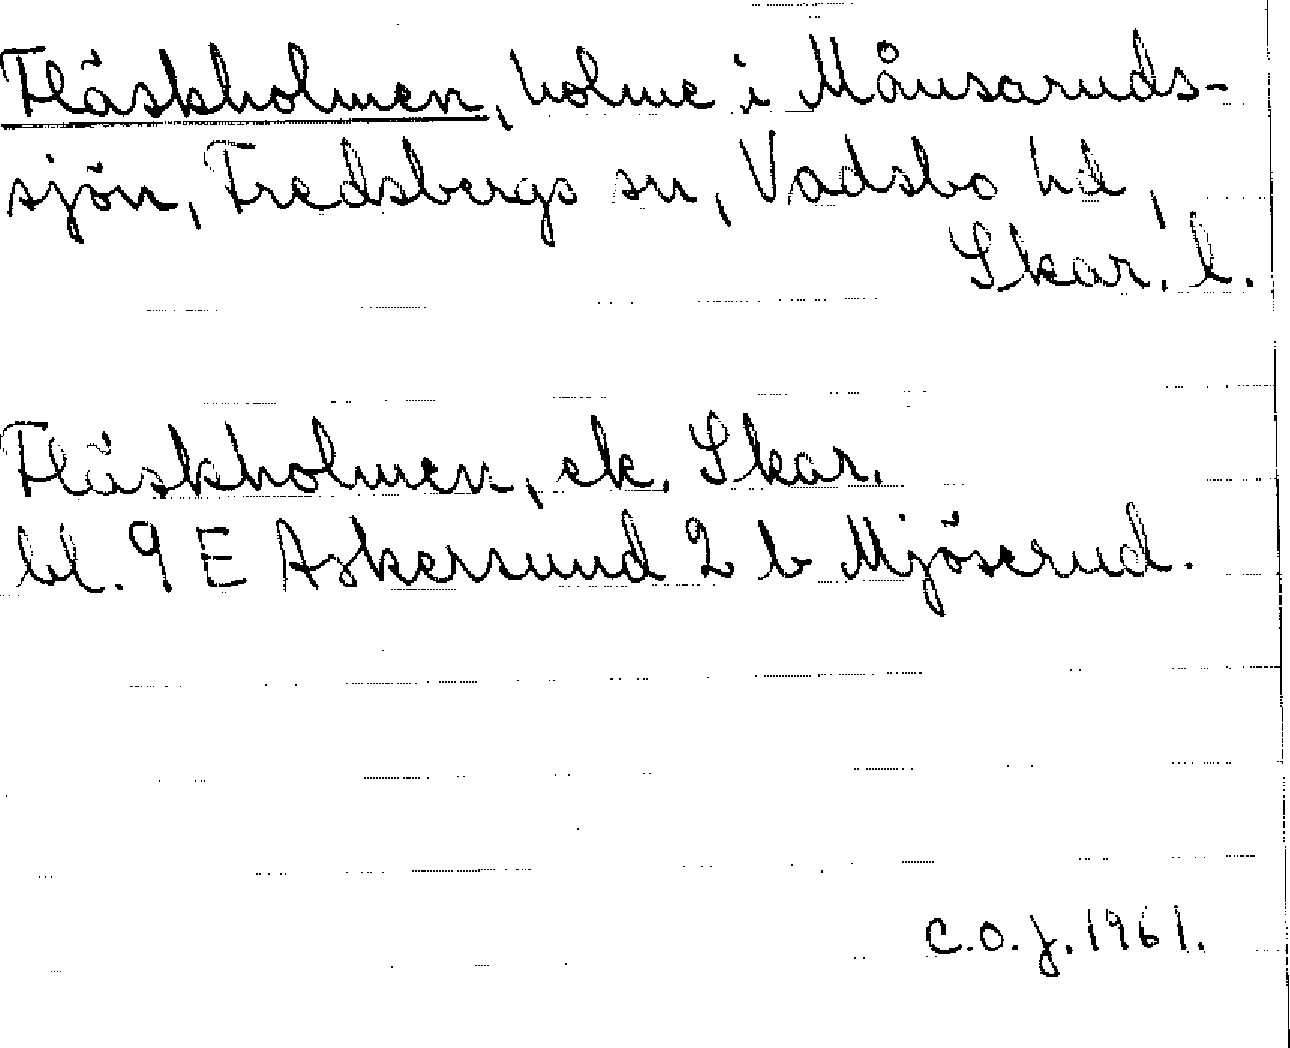 Fläskholmen, holme i Månsaruds-
sjön, Fredsbergs sn, Vadsbo hd,
Skar. l.
Fläskholmen, ek. Skar.
bl. 9 E Askersund 2 b Mjöserud.
C.O.J. 1961.